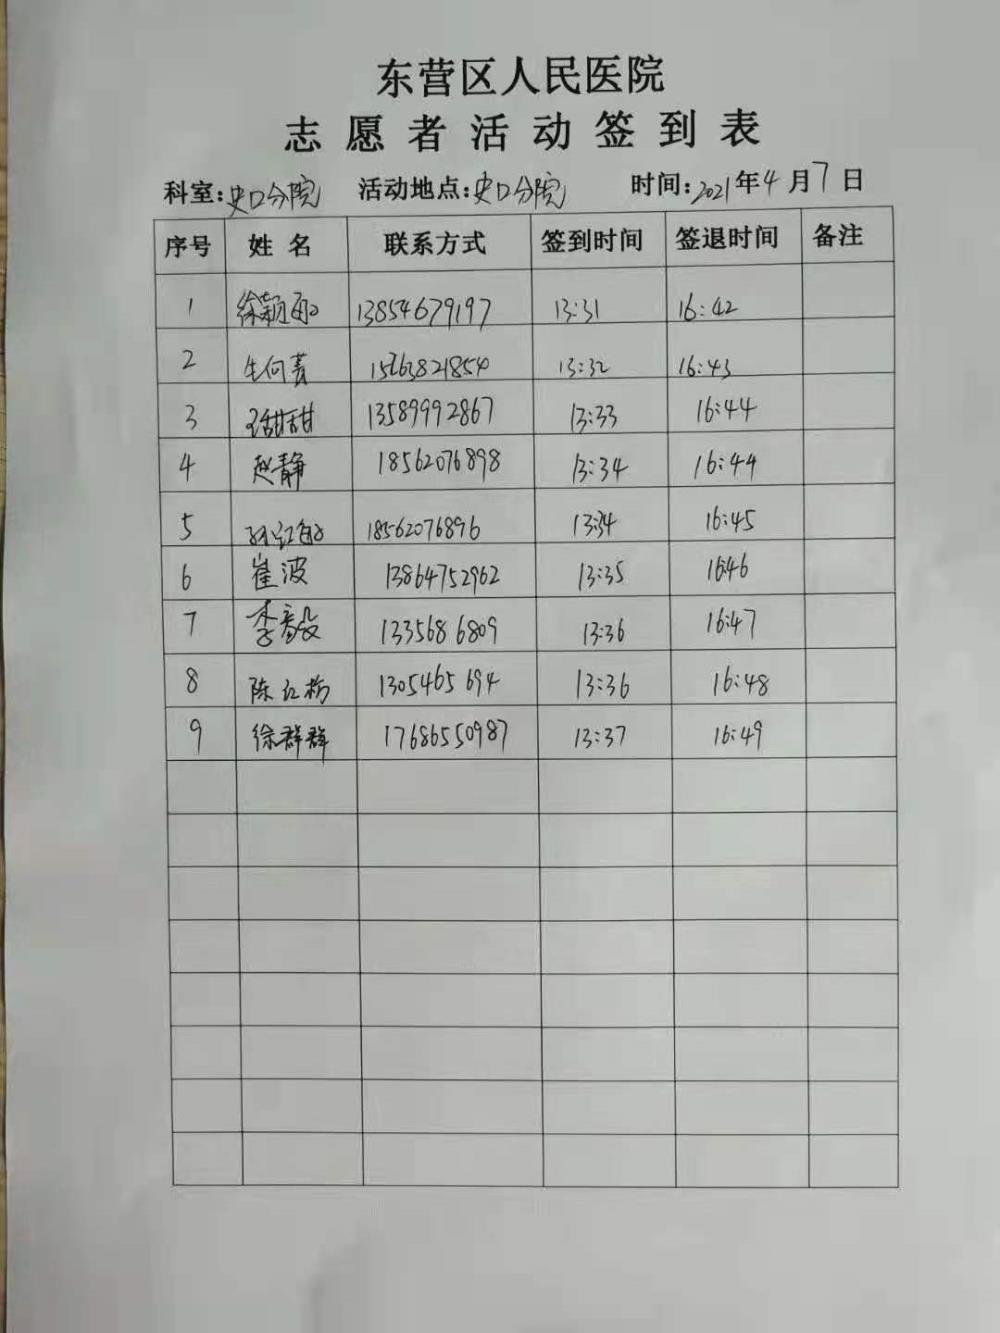 东营区人民医院
志愿者活动签到表
科室:史口分院 活动地点:史口分院 时间:2021年4月7日
序号 姓名 联系方式 签到时间 签退时间 备注
1 13854679197 13:31 16:42
2 15263821854 13:32 16:43
3 王甜甜 13589992867 13:33 16:44
4 赵静 18562076898 13:34 16:44
5 18562076896 13:34 16:45
6 崔波 13864752962 13:35 16:46
7 1335686809 13:36 16:47
8 1305465694 13:36 16:48
9 徐群群 17686550987 13:37 16:49